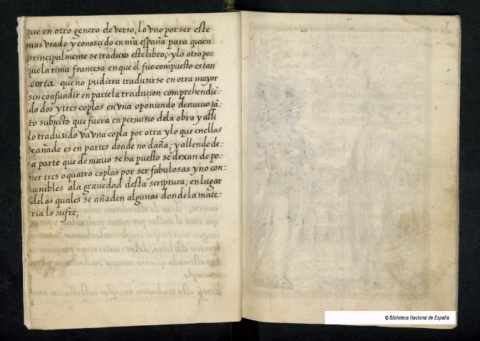 que en otro genero de verso, lo uno por ser este
mas usado y conoscido en nra españa para quien
principalmente se traduxo este libro, y lo otro por
que la rima francesa en que el fue compuesto es tan
corta que no pudiera traduzirse en otra mayor
sin confundir en parte la traducion comprehendie
do dos y tres coplas en una o poniendo de nuevo ta
to subjecto que fuera en perjuizio de la obra y assi
lo traduzido va una copla por otra y lo que en ellas
se añade es en partes donde no daña, y allende de
a parte que de nuevo se ha puesto se dexan de po
ner tres o quatro coplas por ser fabulosas y no con
venibles a la gravedad desta scriptura, en lugar
de las quales se añaden algunas donde la mate
ria lo sufre,
© Biblioteca Nacional de España